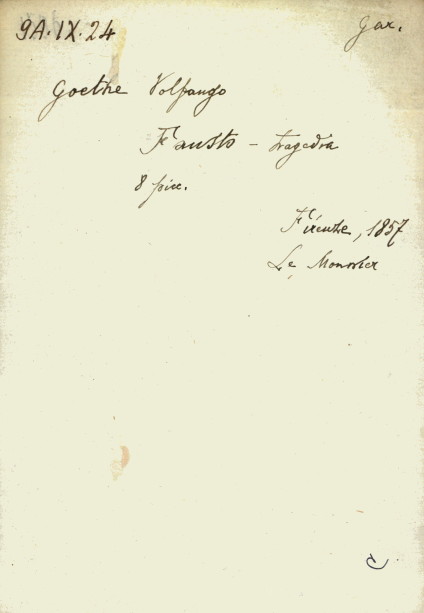 9A.IX.24
Gar.
Goethe Volfango
Fausto - tragedia
8 picc.
Firenze, 1857
Le Monnier